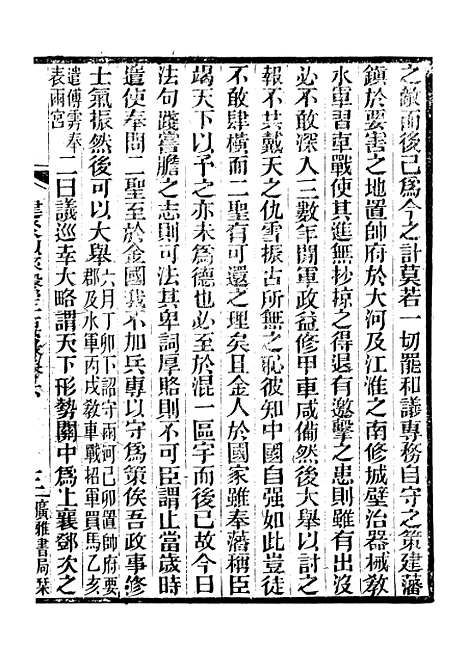 之敵而後已爲今之計莫若一切罷和議專務自守之策建藩
鎮於要害之地置帥府於大河及江淮之南修城壁治器械敎
水軍習車戰使其進無抄掠之得退有邀擊之患則雖有出沒
必不敢深入三數年間軍政益修甲車咸備然後大舉以討之
報不共戴天之仇雪振古所無之恥彼知中國自强如此豈徒
不敢肆橫而二聖有可還之理矣且金人於國家雖奉藩稱臣
竭天下以予之亦未爲德也必至於混一區宇而後已故今日
法句踐嘗膽之志則可法其卑詞厚賂則不可臣謂止當歲時
遣使奉問二聖至於金國我不加兵專以守爲策俟吾政事修
士氣振然後可以大舉六月丁卯下詔守兩河己卯置帥府要
郡及水軍丙戌敎車戰招軍買馬乙亥
遣傅雱奉
表兩宮二曰議巡幸大略謂天下形勢關中爲上襄鄧次之
二廣雅書局栞